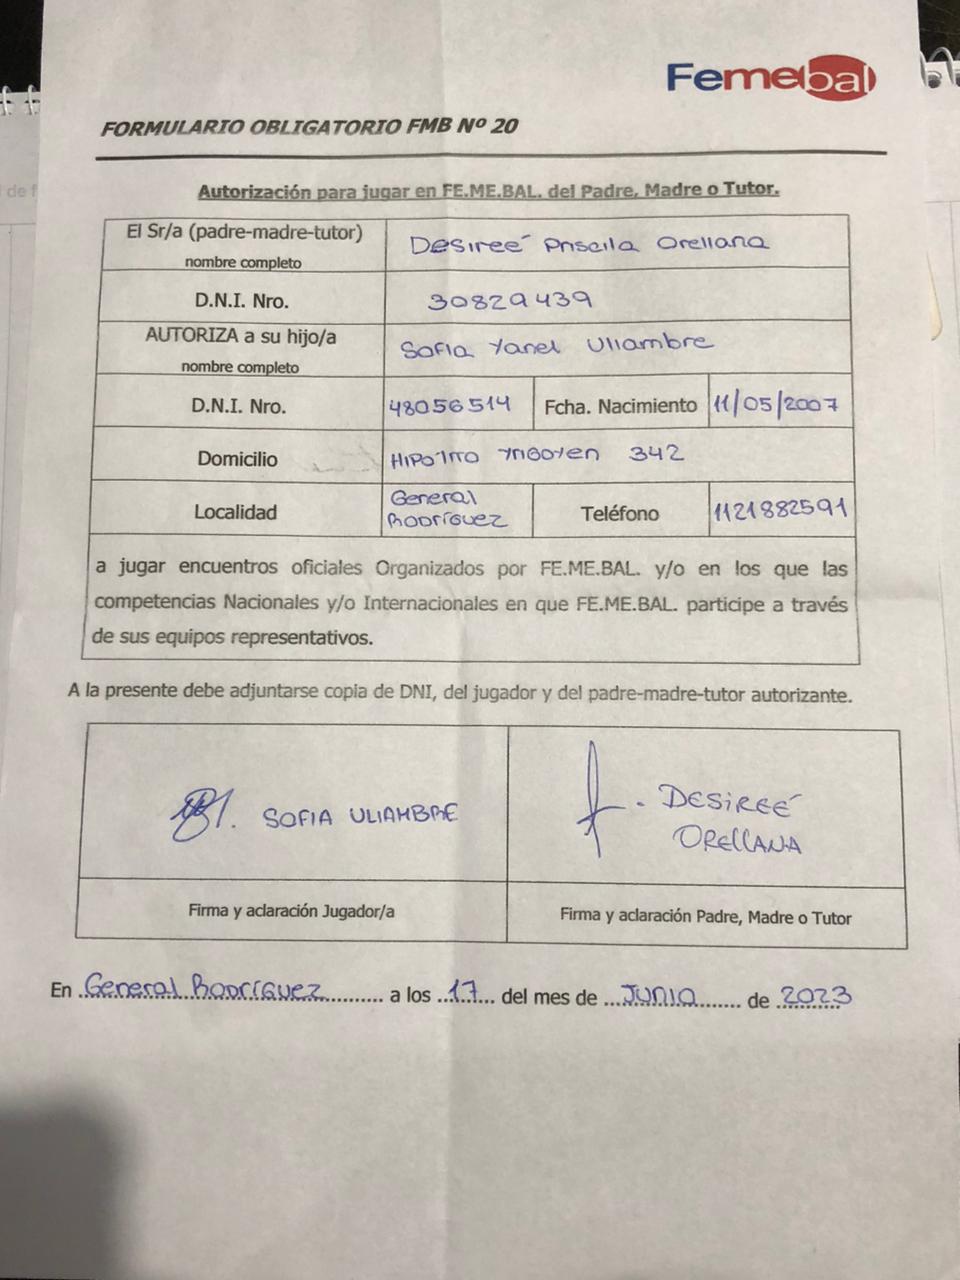 Femebal
FORMULARIO OBLIGATORIO FMB Nº 20
Autorización para jugar en FE.ME.BAL. del Padre, Madre o Tutor.
El Sr/a (padre-madre-tutor)
nombre completo
Desireé Priscila Orellana
D.N.I. Nro.
30829439
AUTORIZA a su hijo/a
nombre completo
Sofia Yanel Uliambre
D.N.I. Nro.
48056514
Fcha. Nacimiento
11/05/2007
Domicilio
Hipolito Yrigoyen 342
Localidad
General
Rodríguez
Teléfono
1121882591
a jugar encuentros oficiales Organizados por FE.ME.BAL. y/o en los que las
competencias Nacionales y/o Internacionales en que FE.ME.BAL. participe a través
de sus equipos representativos.
A la presente debe adjuntarse copia de DNI, del jugador y del padre-madre-tutor autorizante.
SOFIA ULIAMBRE
DESIREÉ
ORELLANA
Firma y aclaración Jugador/a
Firma y aclaración Padre, Madre o Tutor
En General Rodríguez a los 17 del mes de JUNIO de 2023